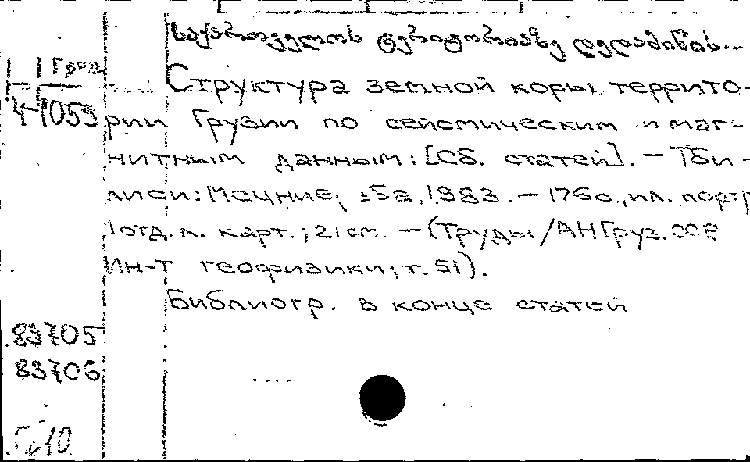 საქართველოს ტერიტორიაზე დედამიწის...
Груз
4-1053
Структура земной коры террито-
рии Грузии по сейсмическим и маг-
нитным данным: [Сб. статей]. – Тби-
лиси: Мецние, 1983. – 176с., ил. портр
1 отд. л. карт.; 21 см. – (Труды / АН Груз. ССР
Ин-т геофизики; т. 51).
Библиогр. в конце статей
83705
83706